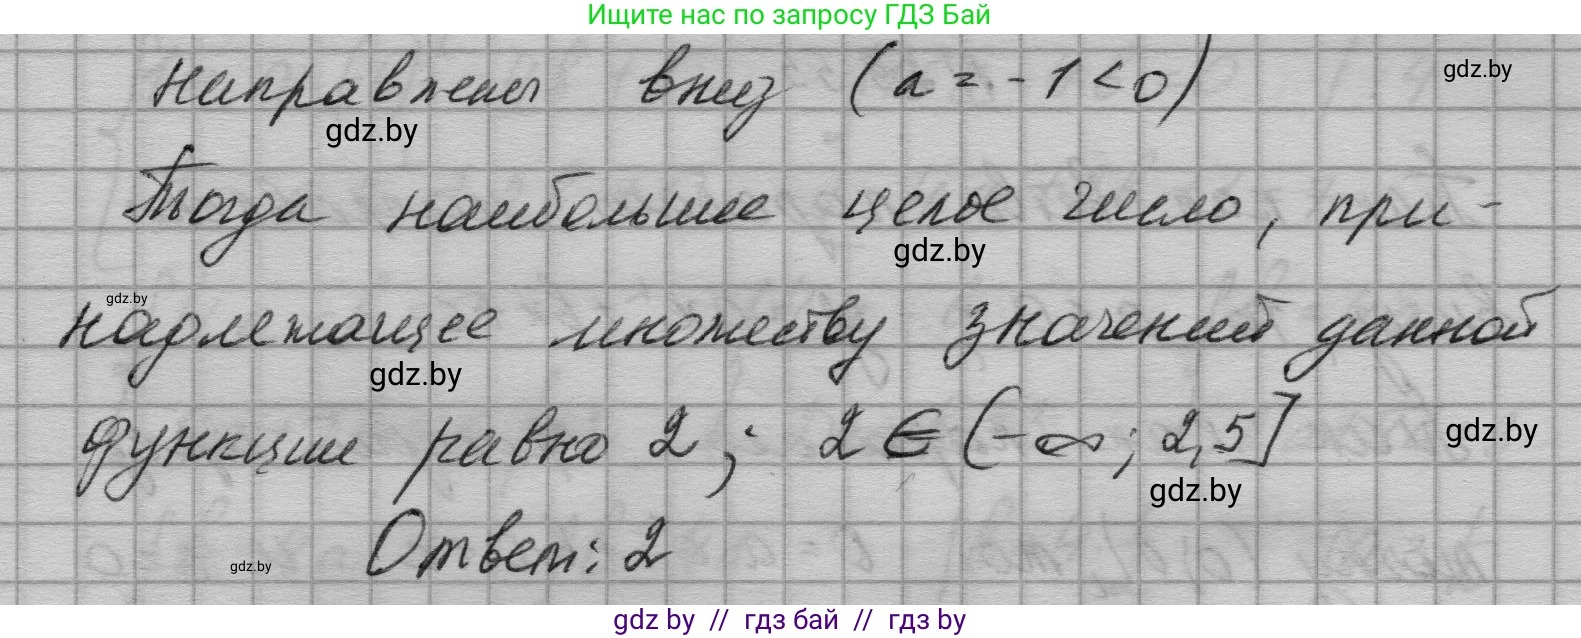 Ищите нас по запросу ГДЗ Бай
направлены вниз (a = -1 < 0)
gdz.by
gdz.by
Тогда наибольшее целое число, при-
gdz.by
gdz.by
надлежащее множеству значений данной
gdz.by
функции равно 2; 2 ∈ (-∞; 2,5]
gdz.by
gdz.by
Ответ: 2
gdz.by
gdz by // гдз бай // гдз by